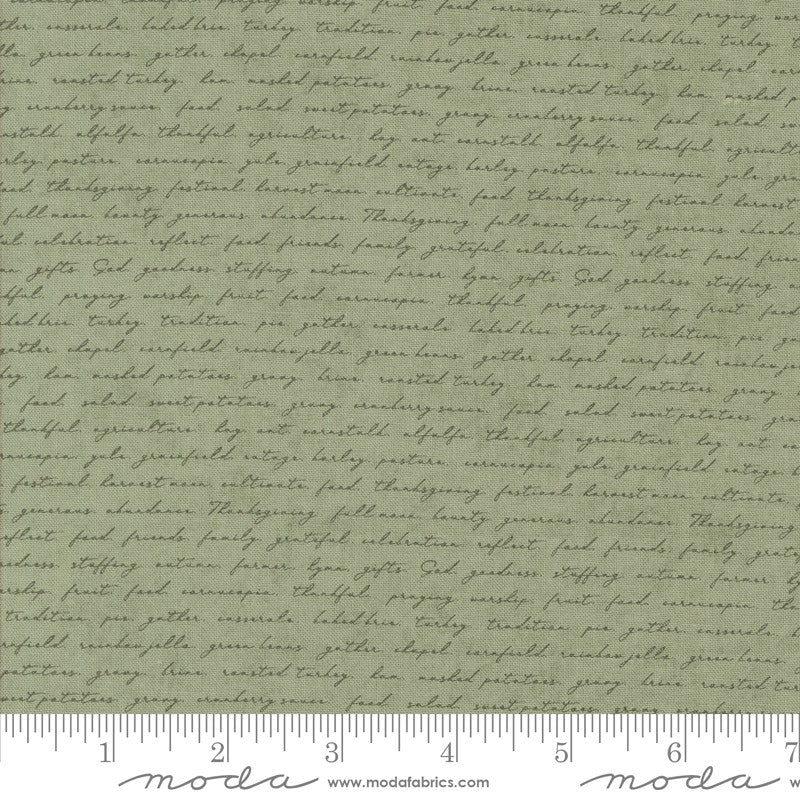 cornucopia thankful praying worship fruit food cornucopia thankful praying
gather casserole baked brie turkey tradition pie gather casserole baked brie turkey
green beans gather chapel cornfield rainbow jello green beans gather chapel
brine roasted turkey ham mashed potatoes gravy brine roasted turkey ham mashed
cranberry sauce food salad sweet potatoes gravy cranberry sauce food salad
cornstalk alfalfa thankful agriculture hay oat cornstalk alfalfa thankful
barley pasture cornucopia yule grainfield barley pasture cornucopia yule
food thanksgiving festival harvest moon cultivate food thanksgiving festival harvest
full moon bounty generous abundance Thanksgiving full moon bounty generous
celebration reflect food friends family grateful celebration reflect food
gifts God goodness stuffing autumn farmer hymn gifts God goodness stuffing
praying worship fruit food cornucopia thankful praying worship fruit food
baked brie turkey tradition pie gather casserole baked brie turkey tradition pie
gather chapel cornfield rainbow jello green beans gather chapel cornfield
ham mashed potatoes gravy brine roasted turkey ham mashed potatoes gravy
food salad sweet potatoes gravy cranberry sauce food salad sweet potatoes
thankful agriculture hay oat cornstalk alfalfa thankful agriculture hay oat
cornucopia yule grainfield barley pasture cornucopia yule grainfield
festival harvest moon cultivate food thanksgiving festival harvest moon cultivate
generous abundance Thanksgiving full moon bounty generous abundance Thanksgiving
reflect food friends family grateful celebration reflect food friends family
goodness stuffing autumn farmer hymn gifts God goodness stuffing autumn farmer
worship fruit food cornucopia thankful praying worship fruit food cornucopia
tradition pie gather casserole baked brie turkey tradition pie gather casserole
cornfield rainbow jello green beans gather chapel cornfield rainbow jello green beans
potatoes gravy brine roasted turkey ham mashed potatoes gravy brine roasted
sweet potatoes gravy cranberry sauce food salad sweet potatoes gravy
1 2 3 4 5 6 7
moda www.modafabrics.com moda